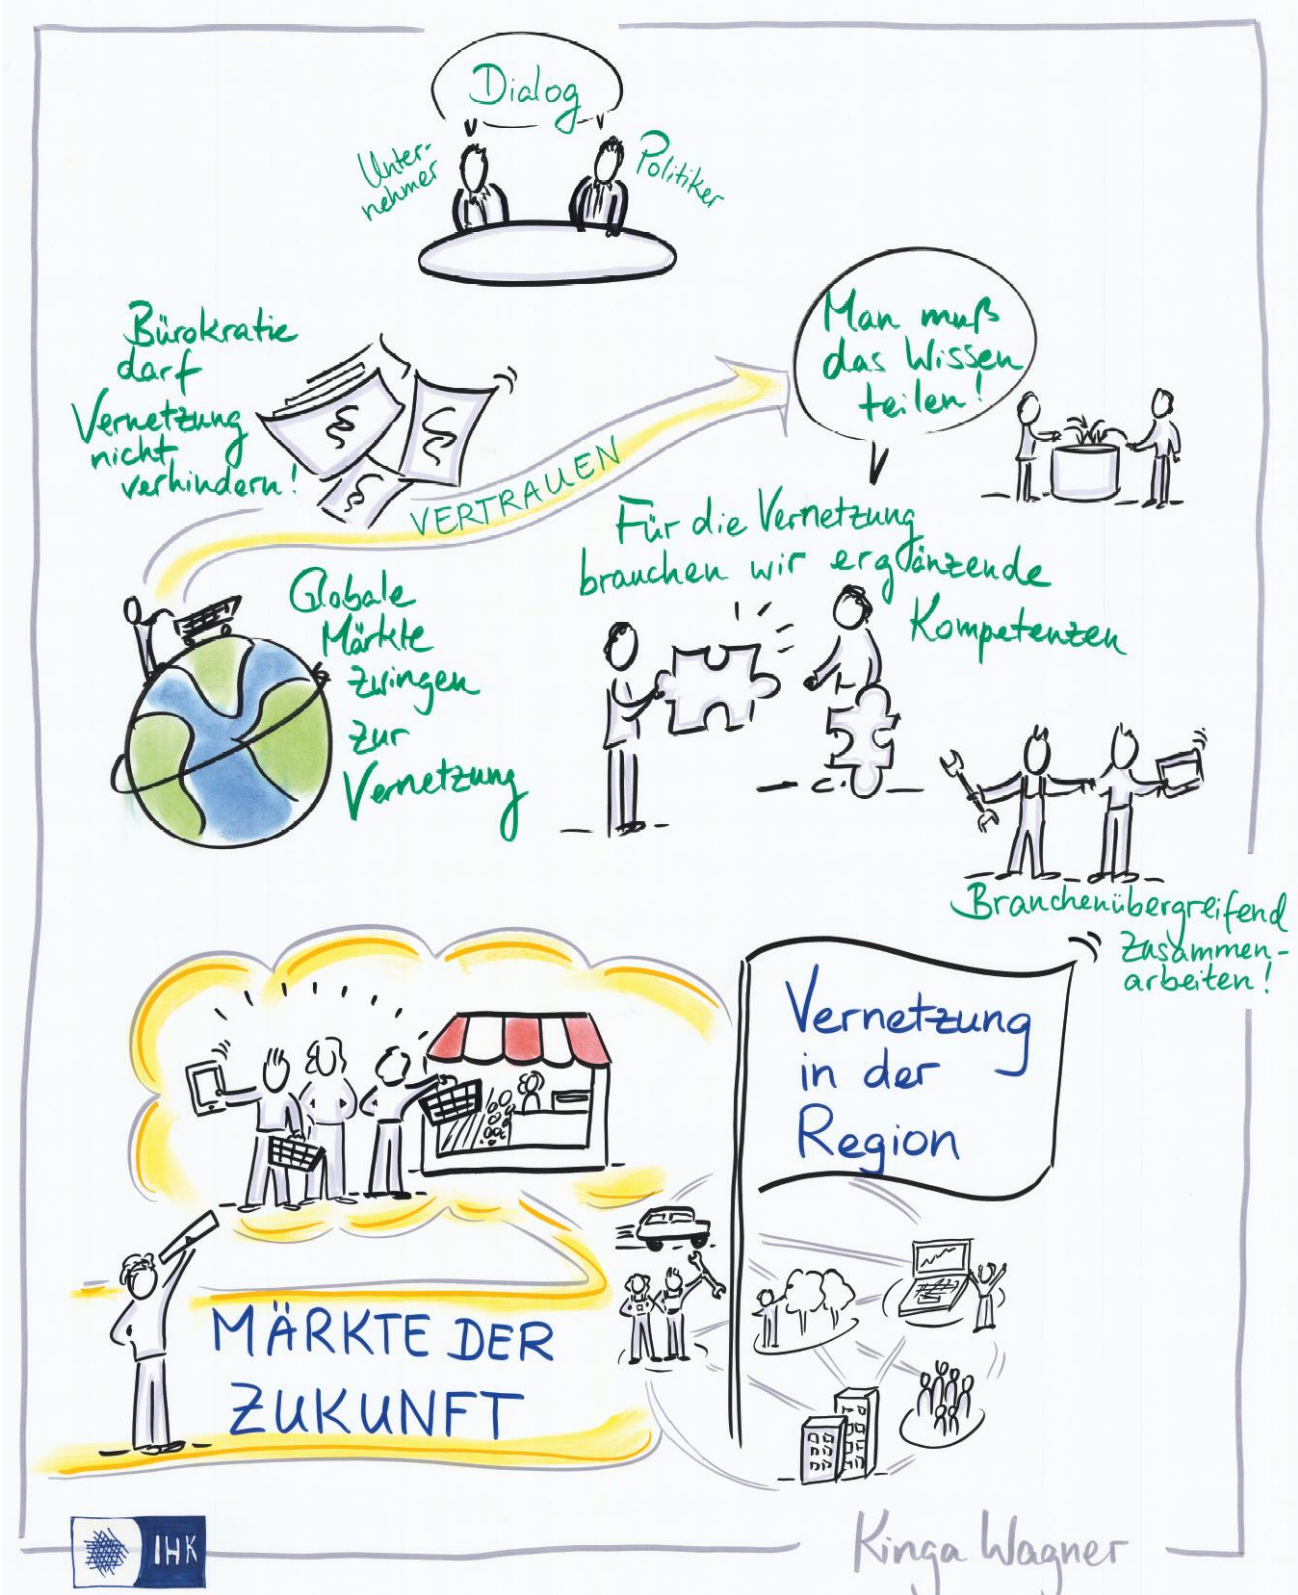 Dialog
Unter-
nehmer
Politiker
Bürokratie
darf
Vernetzung
nicht
verhindern!
VERTRAUEN
Man muß
das Wissen
teilen!
Für die Vernetzung
brauchen wir ergänzende
Kompetenzen
Globale
Märkte
zwingen
zur
Vernetzung
Branchenübergreifend
zusammen-
arbeiten!
Vernetzung
in der
Region
MÄRKTE DER
ZUKUNFT
IHK
Kinga Wagner